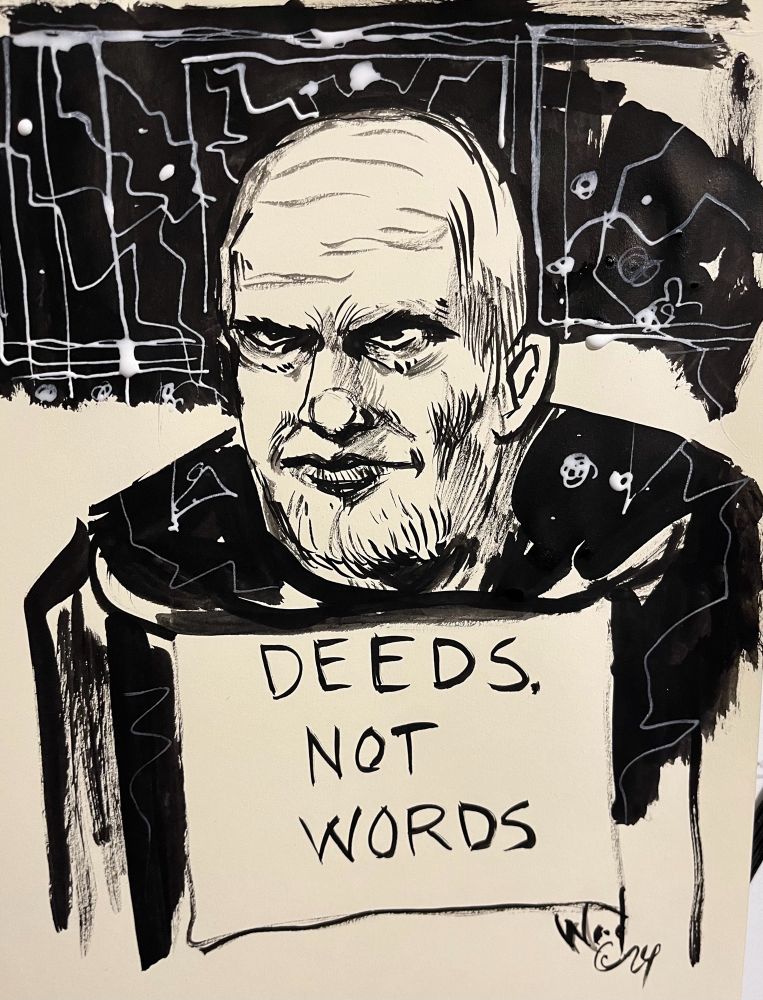 DEEDS.
NOT
WORDS